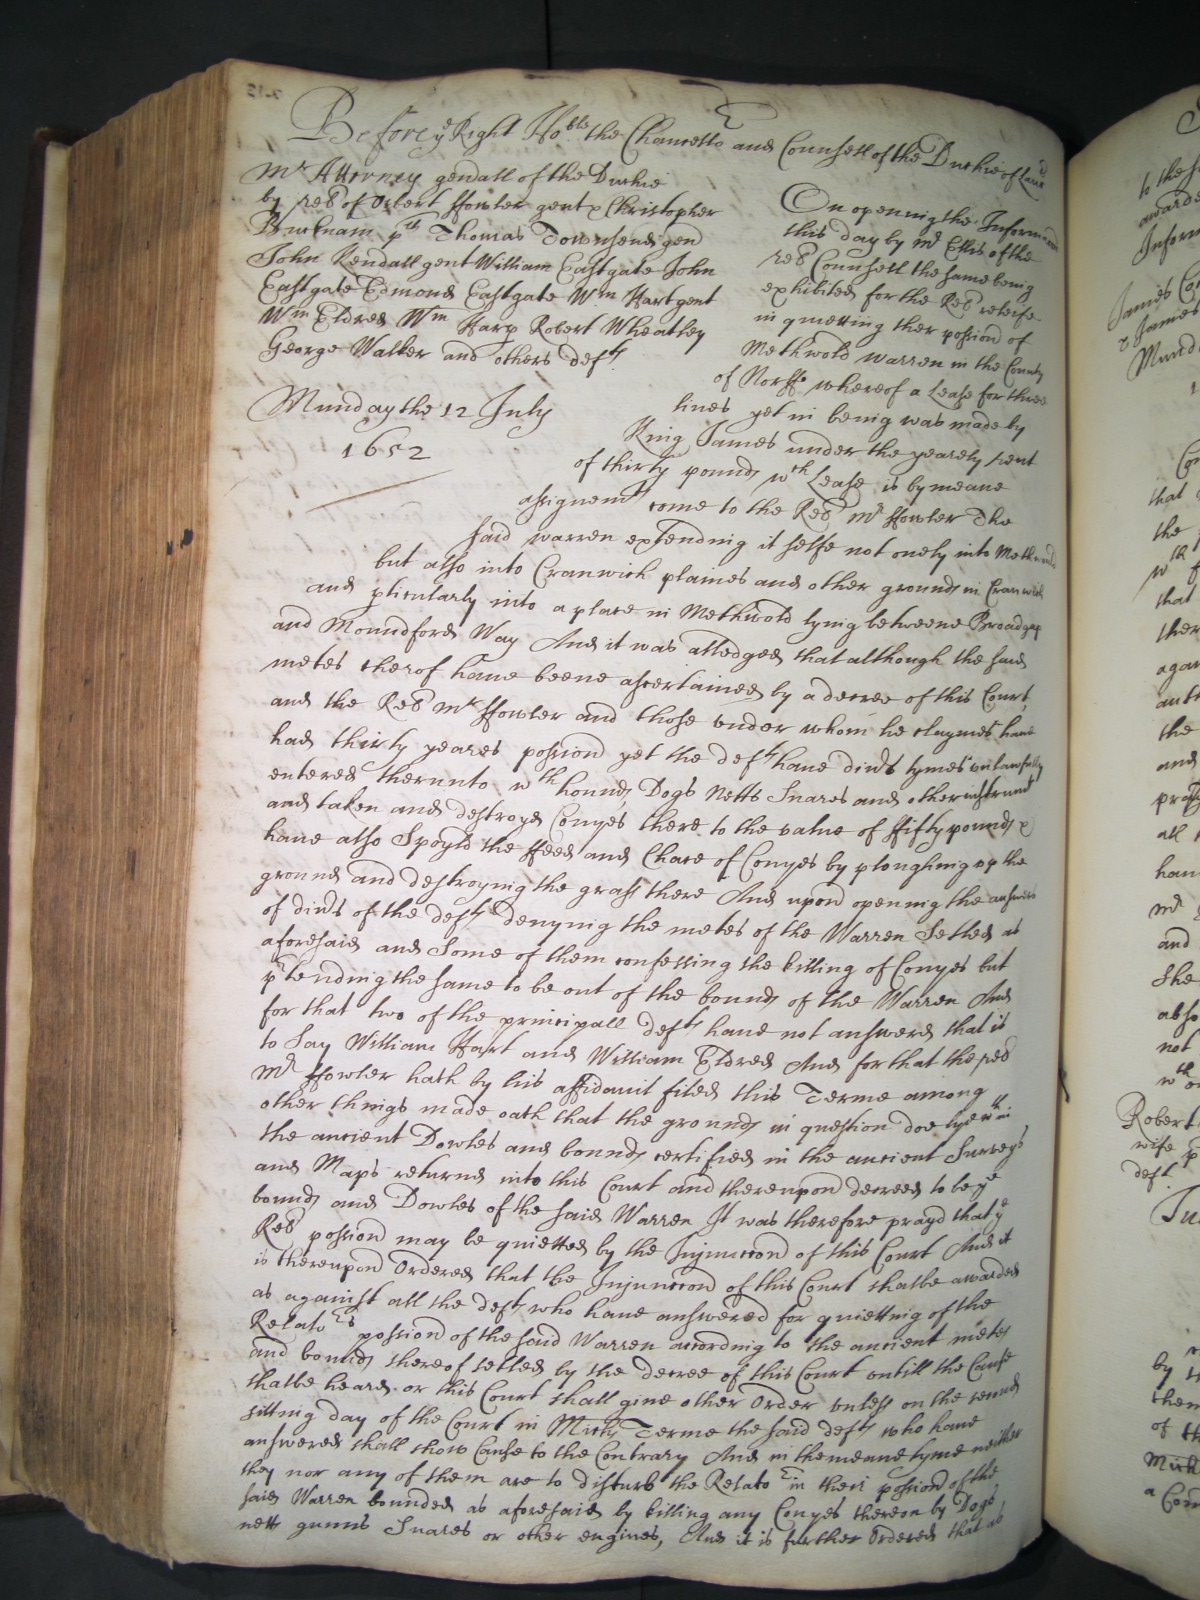 Before ye Right Hoble the Chancellor and Counsell of the Duchie of Lancr
Mr Attorney genall of the Duchie
by rel of Osbert ffowler gent & Christopher
Bucknam plt Thomas Townshend gen
John Kendall gent William Eastgate John
Eastgate Edmond Eastgate Wm Hart gent
Wm Eldred Wm Harp Robert Wheatley
George Walker and others defts
Munday the 12 July
1652
On opening the Informacon
this day by mr Ellis of the
rels Counsell the same being
exhibited for the Rels releife
in quietting ther possion of
Methwold warren in the County
of Norff whereof a Lease for three
lives yet in being was made by
King James under the yearely rent
of thirty pounds wch Lease is by meane
assignemts come to the Relr Mr ffowler The
said warren extending it selfe not onely into Methwold
but also into Cranwich plaines and other grounds in Cranwich
and pticularly into a place in Methwold lying betweene Broadgap
and Moundford Way And it was alledged that although the said
metes therof have beene ascertained by a decree of this Court
and the Relr Mr ffowler and those under whom he claymes have
had thirty yeares possion yet the defts have divrs tymes unlawfully
entered therunto wth hounds Dogs Netts Snares and other instrumts
and taken and destroyed Conyes there to the value of ffifty pounds &
have also Spoyld the ffeed and Chace of Conyes by ploughing up the
ground and destroying the grass there And upon opening the answers
of divrs of the defts denying the metes of the Warren Setled as
aforesaid and Some of them confessing the killing of Conyes but
ptending the same to be out of the bounds of the Warren And
for that two of the principall defts have not answered that is
to Say William Hart and William Eldred And for that the relr
Mr ffowler hath by his affidavit filed this Terme among
other things made oath that the grounds in question doe lye wthin
the ancient Dowles and bounds certified in the ancient Surveys
and Maps returned into this Court and thereupon decreed to be ye
bounds and Dowles of the said Warren It was therefore prayd that ye
Rels possion may be quietted by the Injunccon of this Court And it
is thereupon Ordered that the Injunccon of this Court shalbe awarded
as against all the defts who have answered for quietting of the
Relators possion of the said Warren according to the ancient metes
and bounds thereof setled by the decree of this Court untill the Cause
shalbe heard or this Court shall give other Order unless on the second
sitting day of the Court in Michs Terme the said defts who have
answered shall show Cause to the Contrary And in the meane tyme neither
they nor any of them are to disturb the Relators in their possion of the
said Warren bounded as aforesaid by killing any Conyes thereon by Dogs
netts gunns Snares or other engines, And it is further Ordered that as